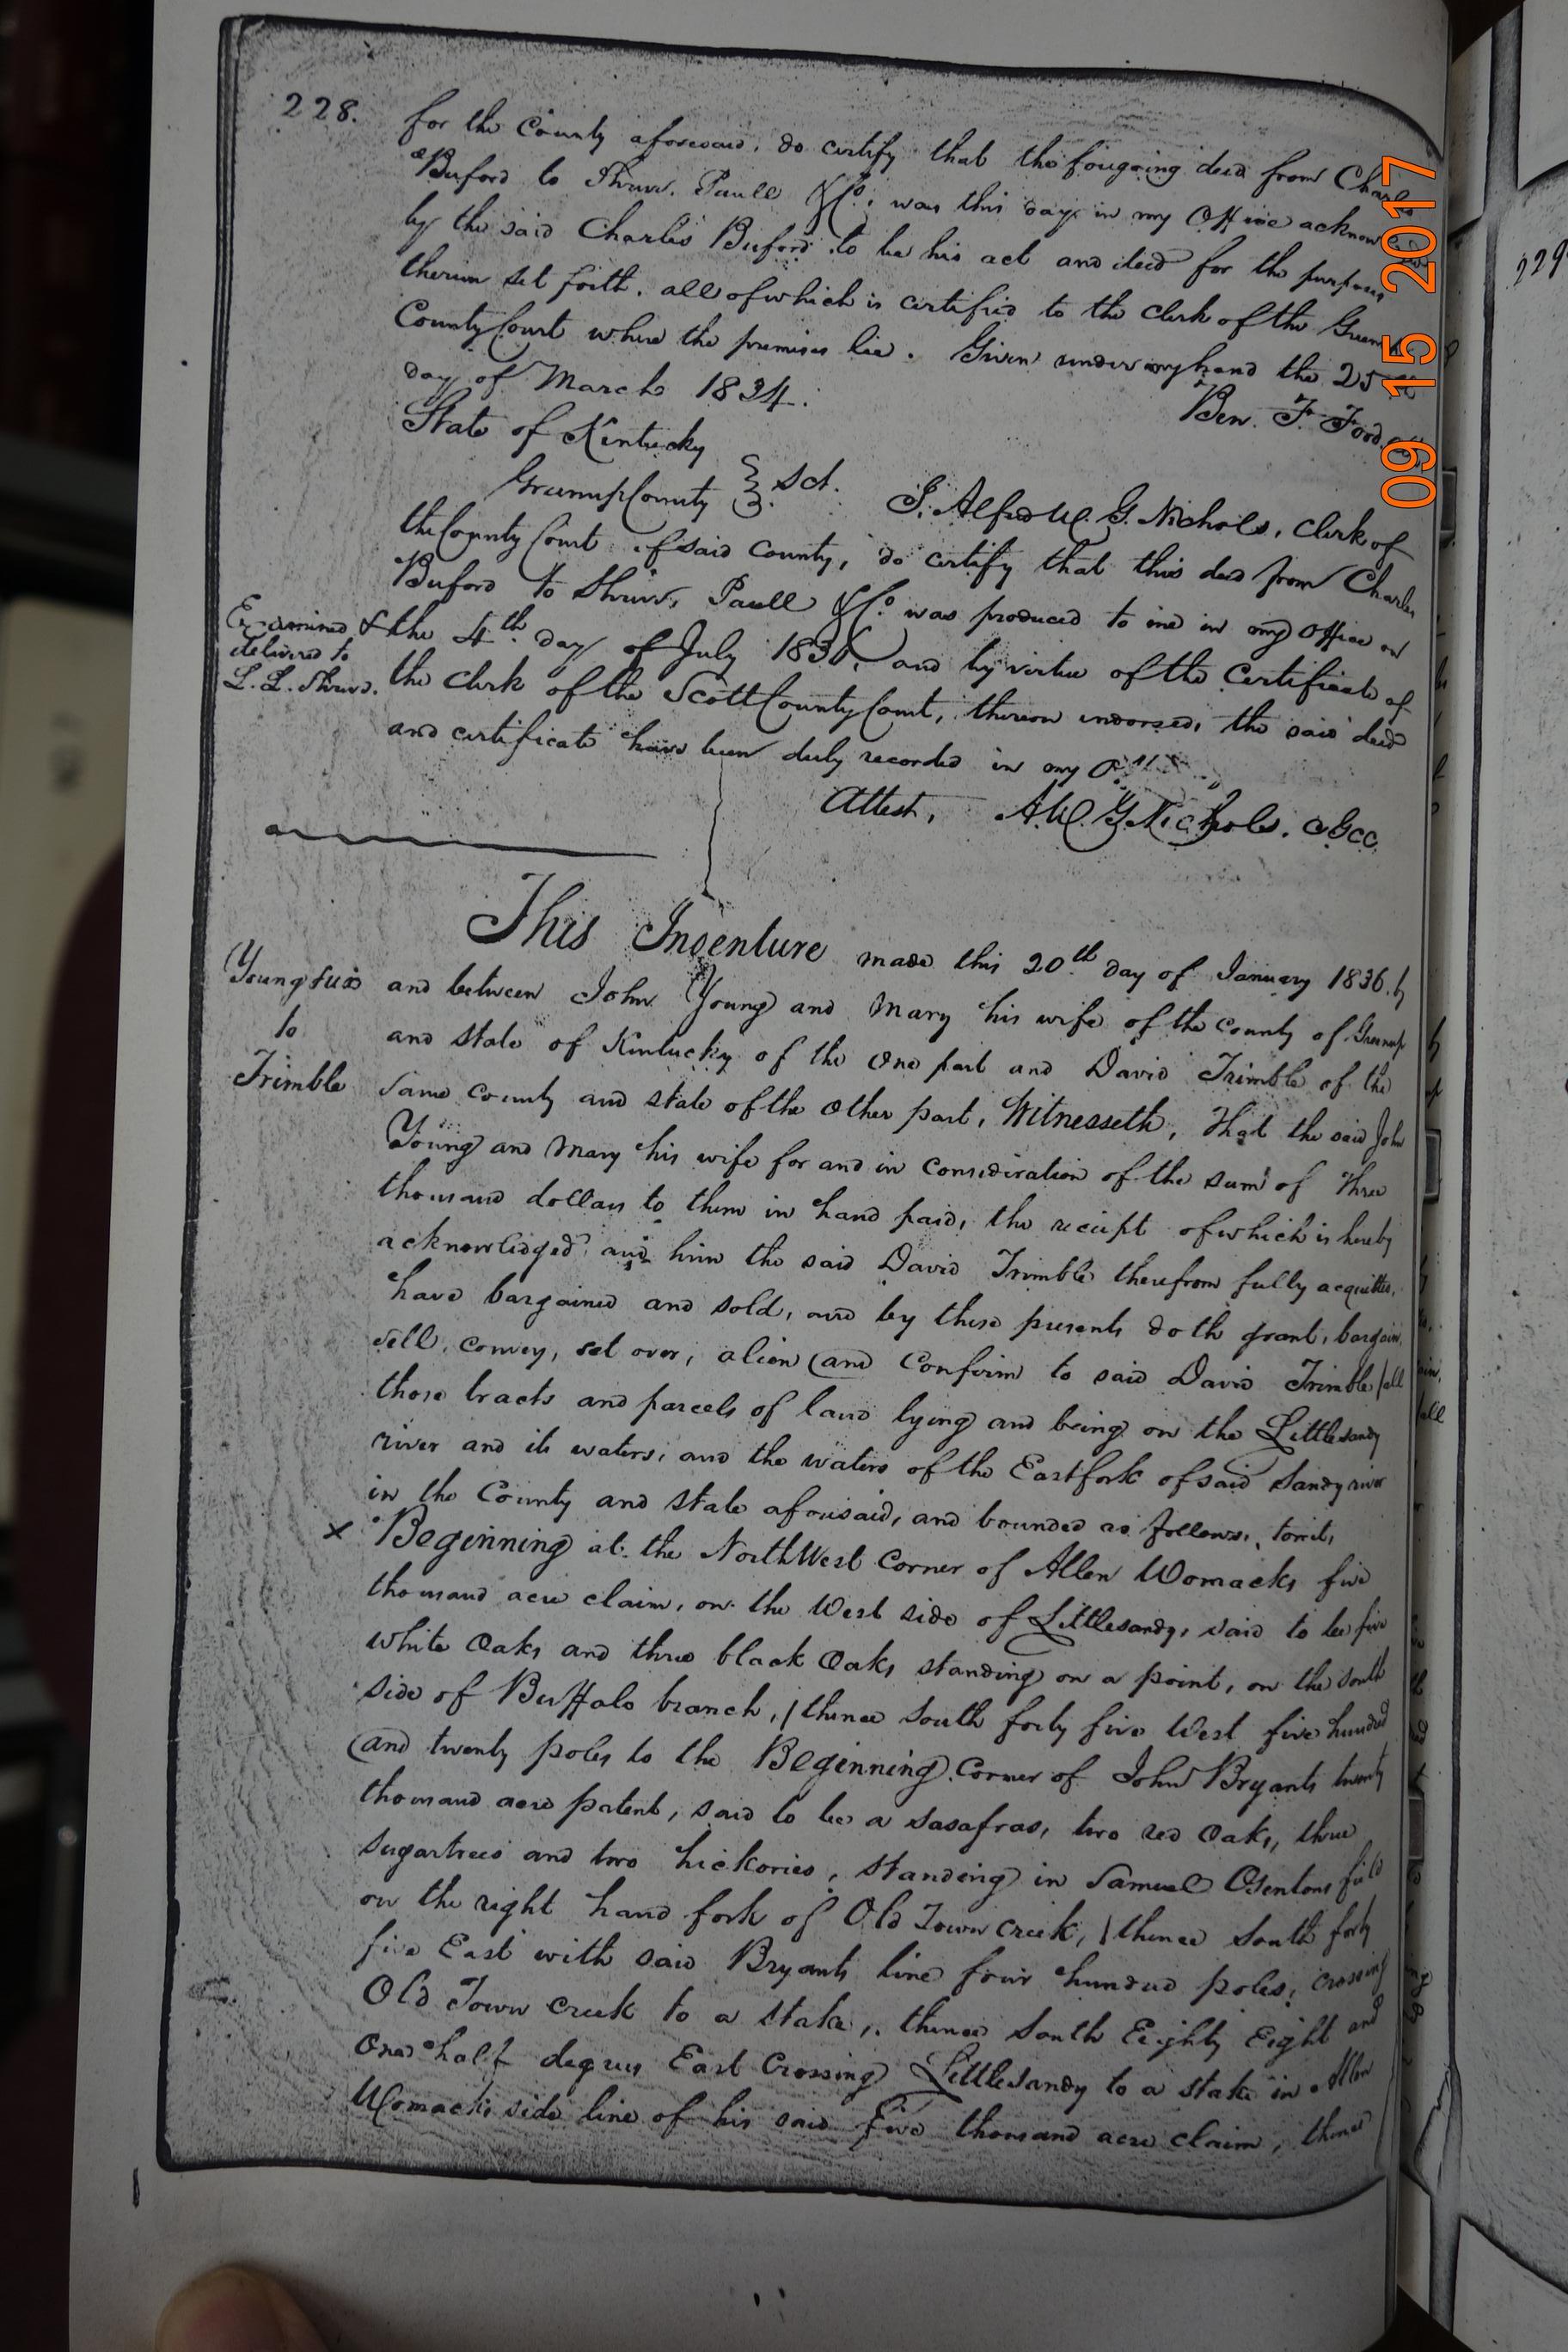 228.
for the County aforesaid, do certify that the foregoing deed from Charles
Buford to Shreve, Paull & Co. was this day in my Office
by the said Charles Buford to be his act and deed for the purposes
therein set forth. all of which is certified to the clerk of the
County Court where the premises lie. Given under my hand the 25th
day of March 1834.
Ben. F. Ford
State of Kentucky
Greenup County } Sct.
I. Alfred W. G. Nichols, Clerk of
the County Court of said County, do certify that this deed from Charles
Buford to Shreve, Paull & Co was produced to me in my Office on
the 4th day of July 1836, and by virtue of the Certificate of
the clerk of the Scott County Court, thereon endorsed, the said deed
and certificate have been duly recorded in my
Attest, A. W. G. Nichols. CGCC
Examined &
delivered to
L. L. Shreve.
This Indenture made this 20th day of January 1836. by
and between John Young and Mary his wife of the County of Greenup
and state of Kentucky of the One part and David Trimble of the
same county and state of the Other part, Witnesseth, That the said John
Young and Mary his wife for and in consideration of the sum of Three
thousand dollars to them in hand paid, the receipt of which is hereby
acknowledged and him the said David Trimble therefrom fully acquitted,
have bargained and sold, and by these presents doth grant, bargain,
sell, convey, set over, alien and Confirm to said David Trimble all
those tracts and parcels of land lying and being on the Littlesandy
river and its waters, and the waters of the Eastfork of said Sandy river
in the County and state aforesaid, and bounded as follows, towit,
Young &ux
to
Trimble
x Beginning at the North West Corner of Allen Womacks five
thousand acre claim, on the West side of Littlesandy, said to be five
white Oaks and three black Oaks standing on a point, on the south
side of Buffalo branch, / thence south forty five West five hundred
and twenty poles to the Beginning Corner of John Bryants twenty
thousand acre patent, said to be a sasafras, two red Oaks, three
sugartrees and two hickories, standing in Samuel Osentons field
on the right hand fork of Old Town Creek, / thence South forty
five East with said Bryants line four hundred poles, crossing
Old Town Creek to a stake, thence South Eighty Eight and
One half degrees East Crossing Littlesandy to a stake in Allen
Womacks side line of his said five thousand acre claim, thence
09 15 2017
229